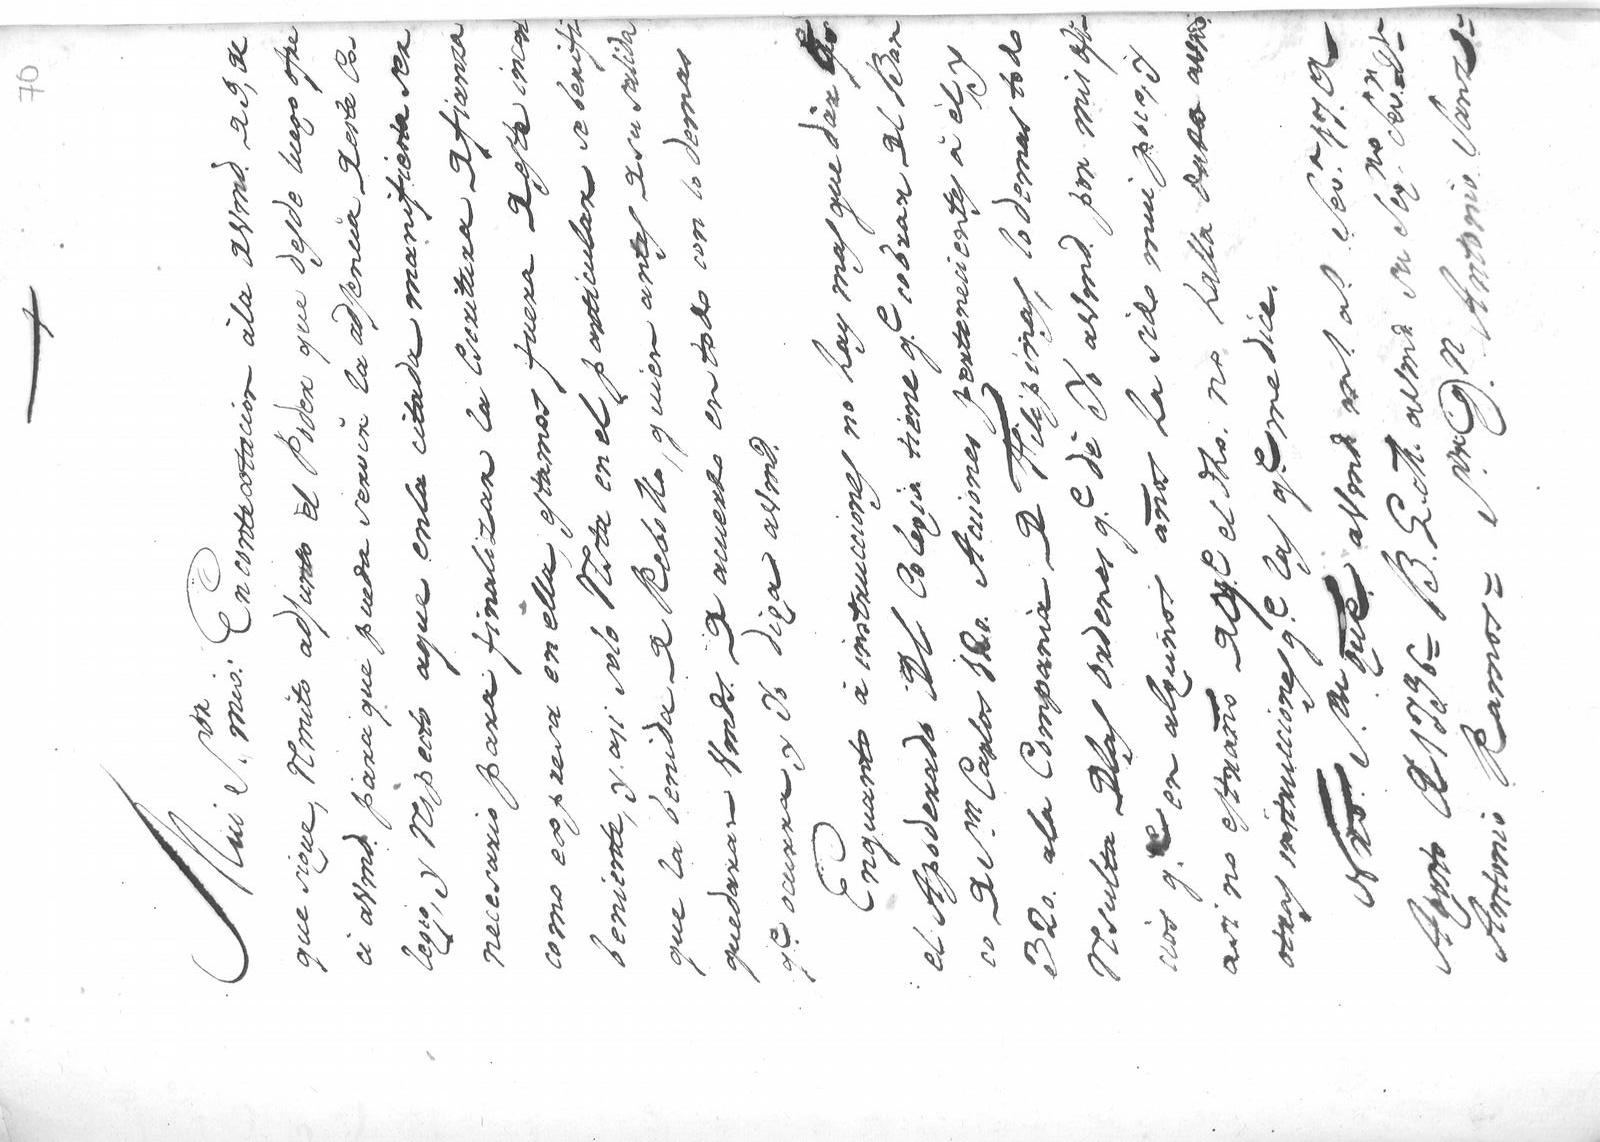 70
Mui S.or mio: En contestacion à la de Vmd. de 29, de
que sigue, Rmito adjunto el Poder que desde luego ofre
ci a Vmd. para que pueda servir la adjencia de este Co-
legio, y Respecto aque en la citada manifiesta ser
necesario para finalizar la Escritura de fianza
como expresa en ella, estamos fuera de este incon
beniente, y asi solo Rsta en el particular se berifi
que la benida de Rebollo, quien antes de su salida
quedaran Vmds. de acuerdo en todo con lo demas
q.e ocurra, y Yo diga a Vmd.
Enquanto à instrucciones no hay mas que dar
el Apoderado del Colegio tiene q.e cobrar del Ban
co de S.n Carlos 320. Acciones pertenecientes à él, y
320. a la Compania de Filipinas, lo demas todo
Rsulta de las ordenes q.e dè Yo a Vmd. por mis ofi-
cios q.e en algunos años ha sido mui poco, y
asi no estraño q.e el dho. no halla dado a Vmd.
otras instrucciones q.e las q.e me dice.
Nro. S. gue. a Vmd m.s a.s
Agosto de 1796 = B. L. M. de Vmd su seg.o
Antonio Ramos = S.r D.n Antonio Sanz